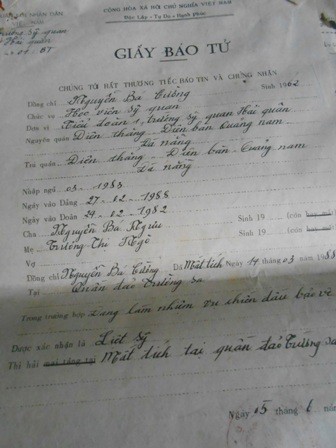 CỘNG HÒA XÃ HỘI CHỦ NGHĨA VIỆT NAM
Độc Lập - Tự Do - Hạnh Phúc
GIẤY BÁO TỬ
CHÚNG TÔI RẤT THƯƠNG TIẾC BÁO TIN VÀ CHỨNG NHẬN
Đồng chí Nguyễn Bá Cường Sinh 1962
Chức vụ Học viên Sỹ quan
Đơn vị Tiểu đoàn 1, trường Sỹ quan Hải quân
Nguyên quán Điện thắng - Điện bàn Quảng nam
Đà nẵng
Trú quán Điện thắng - Điện bàn - Quảng nam
Đà nẵng
Nhập ngũ 03 - 1983
Ngày vào Đảng 27 - 02 - 1988
Ngày vào Đoàn 24 - 02 - 1982
Cha Nguyễn Bá Sinh 19 (còn
Mẹ Trương Thị Ngò Sinh 19 (còn
Vợ Sinh 19 (còn
Đồng chí Nguyễn Bá Cường Đã Mất tích Ngày 14 03 năm 1988
Tại Quần đảo Trường Sa
Trong trường hợp Đang làm nhiệm vụ chiến đấu bảo vệ
Được xác nhận là Liệt sỹ
Thi hài Mất tích tại quần đảo Trường Sa
Ngày 05 tháng 6 năm